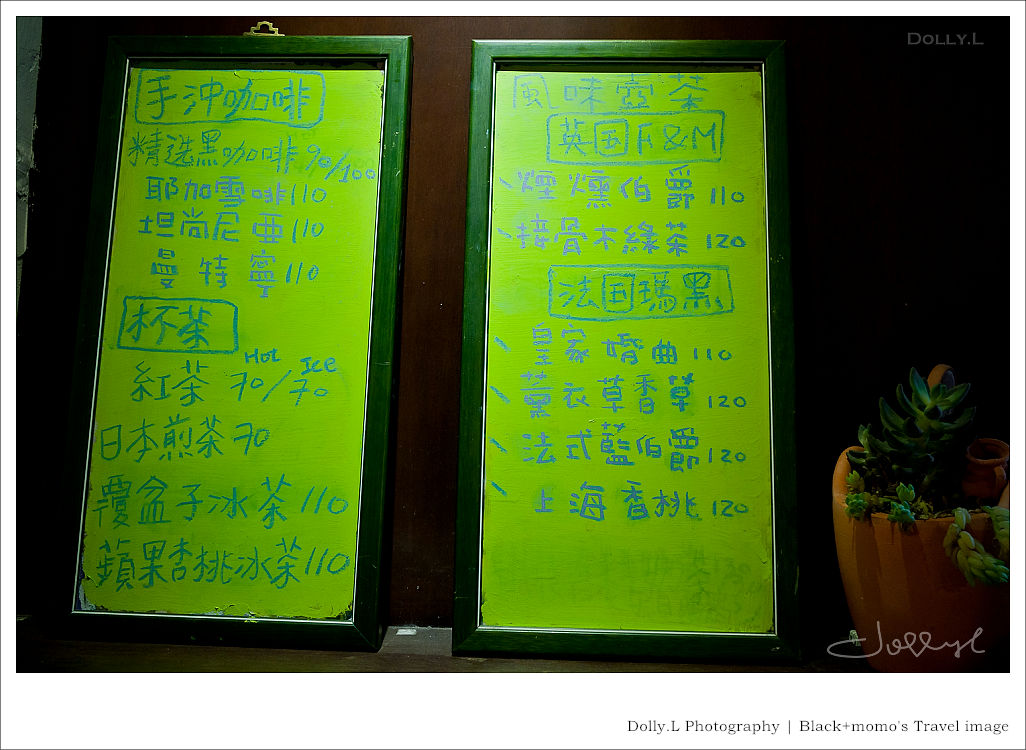 手沖咖啡
精選黑咖啡 90/100
耶加雪啡 110
坦尚尼亞 110
曼特寧 110
杯茶
Hot Ice
紅茶 70/70
日本煎茶 70
覆盆子冰茶 110
蘋果杏桃冰茶 110
風味壺茶
英国F&M
煙燻伯爵 110
接骨木綠茶 120
法国瑪黑
皇家婚曲 110
薰衣草香草 120
法式藍伯爵 120
上海香桃 120
DOLLY.L
Dollyl
Dolly.L Photography | Black+momo's Travel image